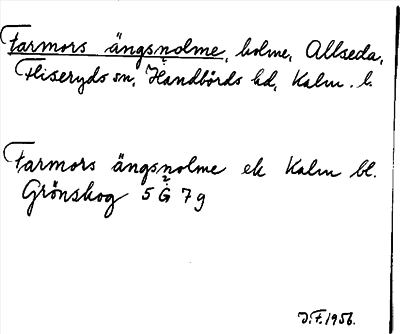 Farmors ängsnolme, holme, Allseda,
Fliseryds sn, Handbörds hd, Kalm. l.
Farmors ängsnolme ek Kalm bl.
Grönskog 5 G 7 g
J.F. 1956.